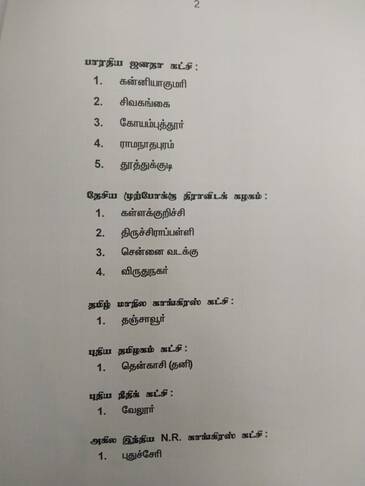 2
பாரதிய ஜனதா கட்சி :
1. கன்னியாகுமரி
2. சிவகங்கை
3. கோயம்புத்தூர்
4. ராமநாதபுரம்
5. தூத்துக்குடி
தேசிய முற்போக்கு திராவிடக் கழகம் :
1. கள்ளக்குறிச்சி
2. திருச்சிராப்பள்ளி
3. சென்னை வடக்கு
4. விருதுநகர்
தமிழ் மாநில காங்கிரஸ் கட்சி :
1. தஞ்சாவூர்
புதிய தமிழகம் கட்சி :
1. தென்காசி (தனி)
புதிய நீதிக் கட்சி :
1. வேலூர்
அகில இந்திய N.R. காங்கிரஸ் கட்சி :
1. புதுச்சேரி